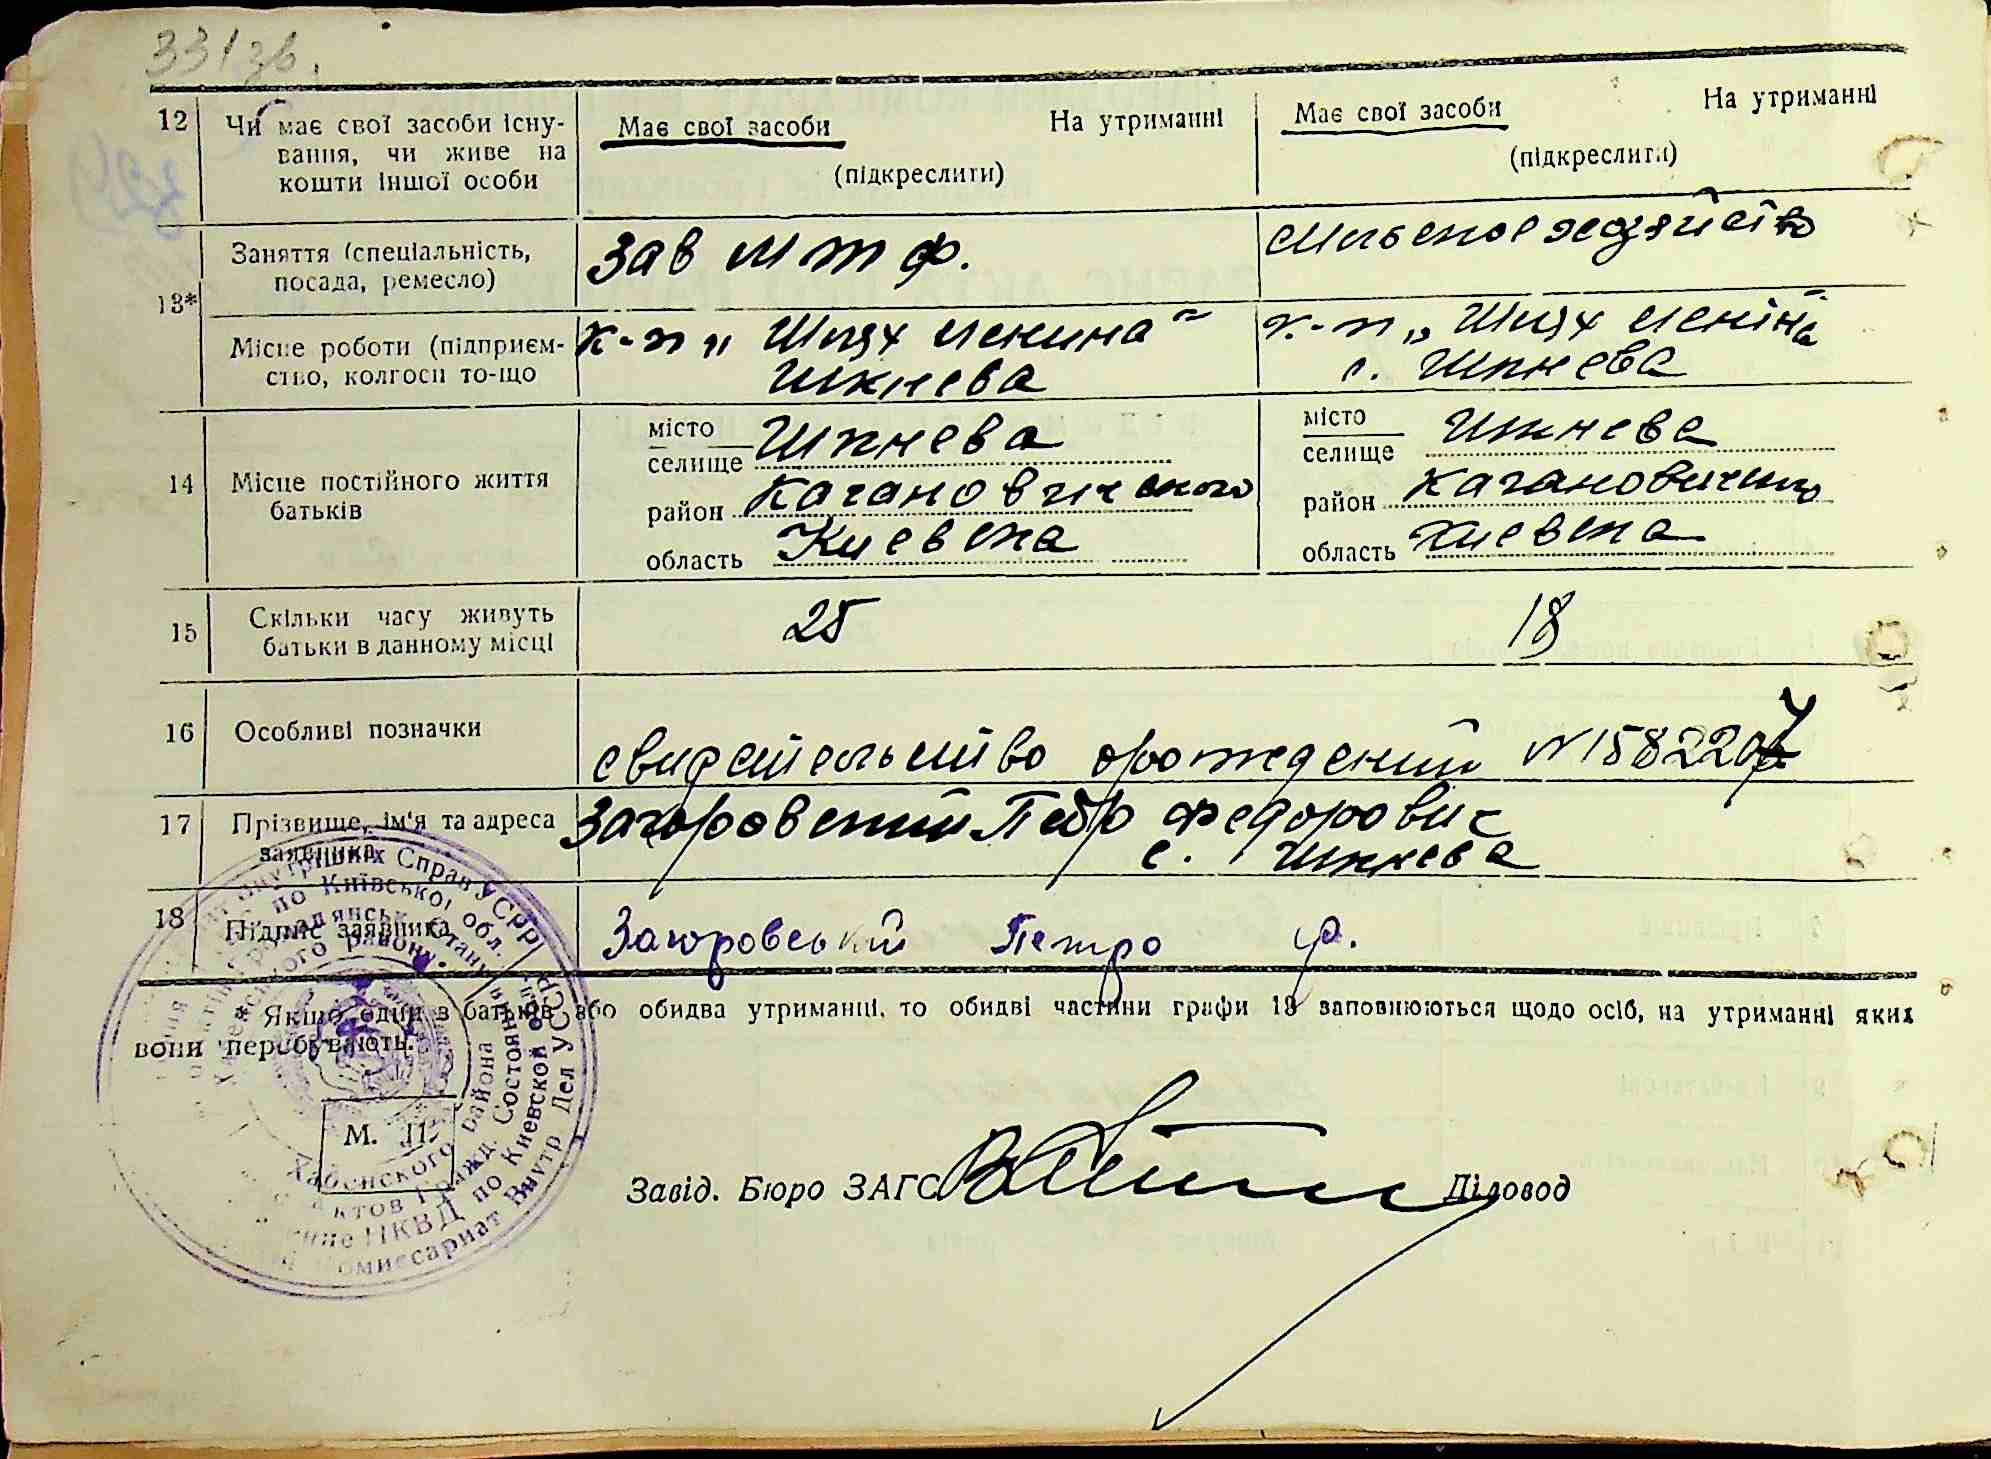 331зв.
12 Чи має свої засоби існу-
вання, чи живе на
кошти іншої особи
Має свої засоби На утриманні
(підкреслити)
Має свої засоби На утриманні
(підкреслити)
13*
Заняття (спеціальність,
посада, ремесло)
Зав М т ф.
Сильское хозяйство
Місце роботи (підприєм-
ство, колгосп то-що
к-п „Шлях Ленина"
Шкнева
к-п „Шлях Леніна
с. Шкнева
14 Місце постійного життя
батьків
місто
селище Шкнева
район Кагановичского
область Киевска
місто
селище Шкнева
район Кагановичьго
область Киевска
15 Скільки часу живуть
батьки в данному місці
25
18
16 Особливі позначки
свидетельство орождении N 1582207
17 Прізвище, ім'я та адреса
заявника
Загоровский Петр Федорович
с. Шкнева
18 Підпис заявника
Загоровський Петро Ф.
* Якщо один з батьків або обидва утриманні, то обидві частини графи 13 заповнюються щодо осіб, на утриманні яких
вони перебувають.
М. П.
Завід. Бюро ЗАГС
Діловод
Внутрішніх Справ УСРР
по Київської обл.
Стану
району
Хабенского района
актов Гражд. Состояния
НКВД по Киевской обл.
Комиссариат Внутр Дел УССР